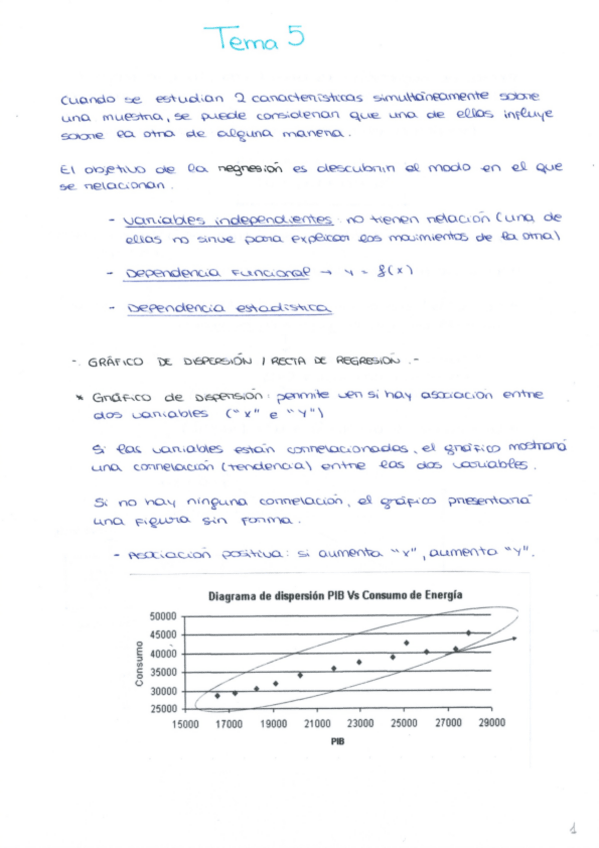 Tema 5
Cuando se estudian 2 características simultáneamente sobre
una muestra, se puede considerar que una de ellas influye
sobre la otra de alguna manera.
El objetivo de la regresión es descubrir el modo en el que
se relacionan.
- Variables independientes: no tienen relación (una de
ellas no sirve para explicar los movimientos de la otra)
- Dependencia funcional → y = f(x)
- Dependencia estadística
-. GRÁFICO DE DISPERSIÓN / RECTA DE REGRESIÓN .-
* Gráfico de dispersión: permite ver si hay asociación entre
dos variables ("x" e "y")
Si las variables están correlacionadas, el gráfico mostrará
una correlación (tendencia) entre las dos variables.
Si no hay ninguna correlación, el gráfico presentaría
una figura sin forma.
- Asociación positiva: si aumenta "x", aumenta "y".
Diagrama de dispersión PIB Vs Consumo de Energía
50000
45000
40000
35000
30000
25000
Consumo
15000 17000 19000 21000 23000 25000 27000 29000
PIB
1